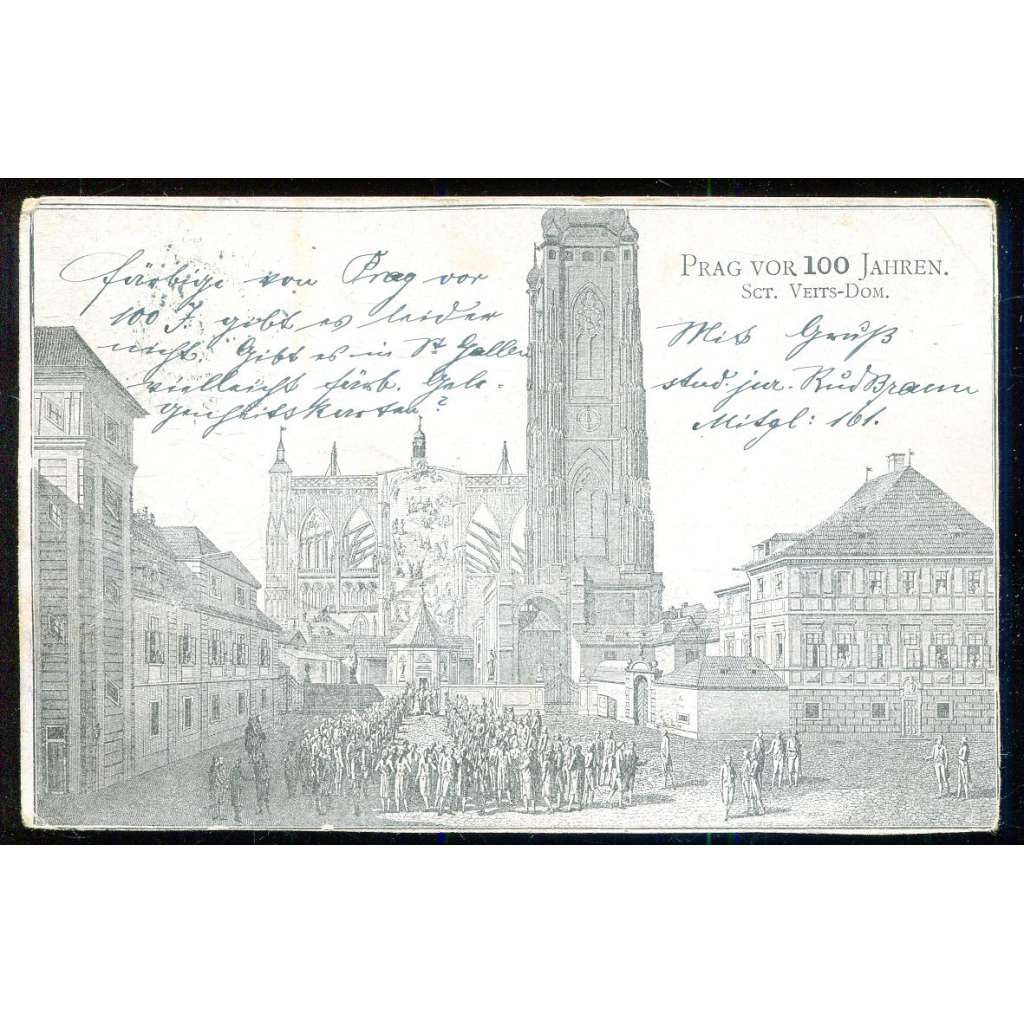 färbige von Prag vor
100 J. gibt es leider
nicht. Gibt es in St Gallen
vielleicht färb. Gele-
genheitskarten?
PRAG VOR 100 JAHREN.
SCT. VEITS-DOM.
Mit Gruß
stud. jur. Rud Braun
Mitgl: 161.